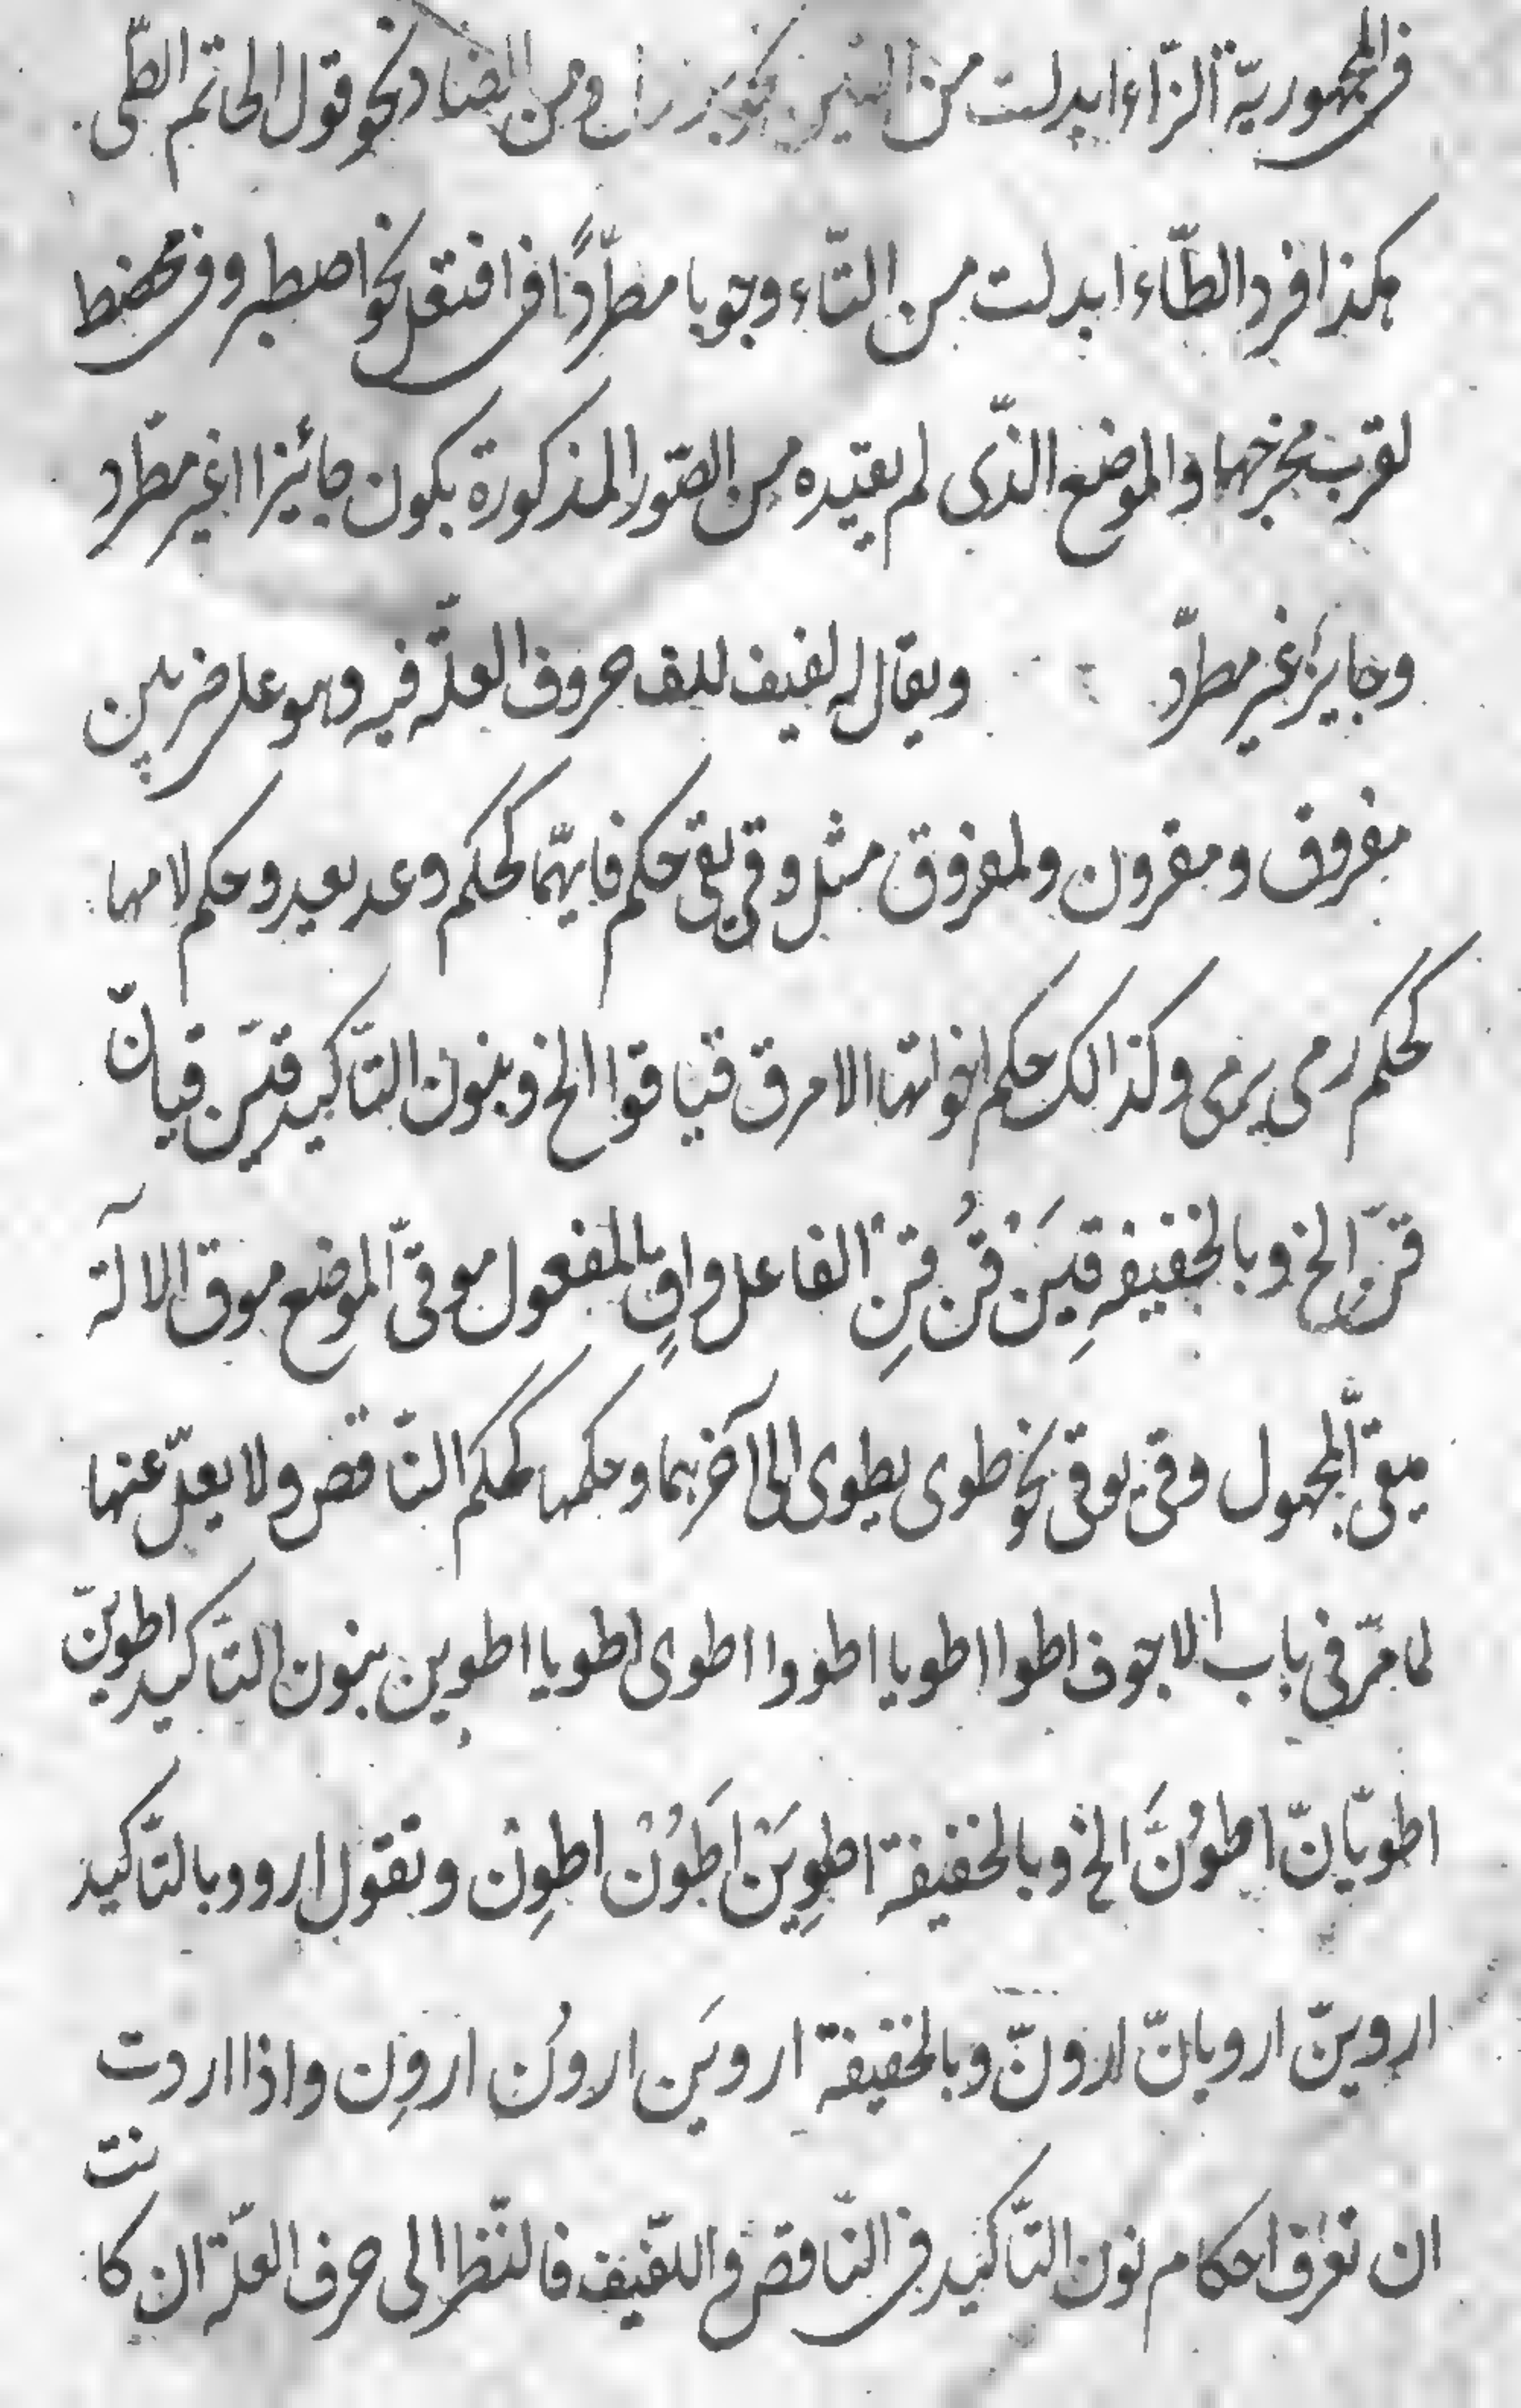 فى المجهوريّة الزّاء ابدلت من السّين نحو يزدل ومن الصاد نحو قول الحاتم الطّى
هكذا فرد الطّاء ابدلت من التّاء وجوبا مطّردًا فى افتعل نحو اصطبر وفى فحصط
لقرب مخرجهما والموضع الذّى لم يقيّده من الصّور المذكورة يكون جائيزا اغير مطّرد
وجايزغير مطرّد ويقال له لفيف للف حروف العلّة فيه وهو على ضربين
مفروق ومقرون ولمفروق مثل وقى يقى حكم فايهّما كحكم وعد يعد وحكم لامها
كحكم رمى يرمى وكذالك حكم اخواتها الامر ق قيا قوا الخ وبنون التّاكيد قيَن قيانّ
قنّ الخ وبالخفيفه قِيَنْ قُنْ قِنْ الفاعل واقٍ المفعول موقىّ الموضع موق الالة
ميقىّ المجهول وقى يوقى نحو طوى يطوى الى آخرهما وحكمها كحكم النّاقص ولا يعلّ عنها
لما مرّ فى باب الاجوف اطوا اطويا اطووا اطوى اطويا اطوين بنون التّاكيد اطوينّ
اطويّانّ اطوُنَّ الخ وبالخفيفة اطوِيَنْ اطَوُنْ اطوِنْ وتقول ارو وبالتّاكيد
اروينّ اروبانّ ارونّ وبالخفيفة ارويَن اروُن اروِن واذا اردت
ان تعرف احكام نون التّاكيد فى النّاقص و اللفّيف فالنّظر الى حرف العلّة ان كا
نت